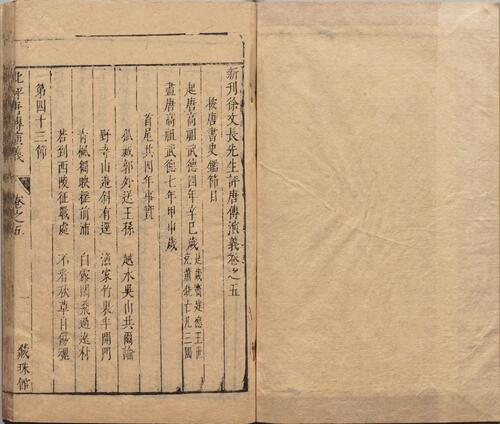 新刊徐文長先生評唐傳演義卷之五
按唐書史鑑節目
起唐高祖武德四年辛巳歲
是歲竇建德王世
充蕭銑亡凡三國
盡唐高祖武德七年甲申歲
首尾共四年事實
孤城郭外送王孫 越水吳山共爾論
野寺山邊斜有逕 漁家竹裏半開門
青楓獨映搖前浦 白鷺閒飛過遠村
若到西陵征戰處 不看秋草自傷魂
第四十三節
卷之五
一
藏珠館